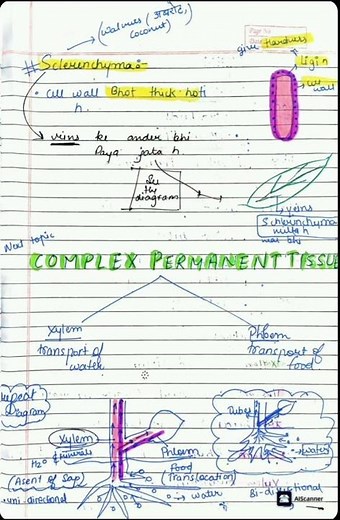 walnuts (अखरोट,
coconut)
give Hardness
# Sclerenchyma:-
Ligin
cell wall
• Cell wall Bhot thick hoti
h.
veins ke ander bhi
Paya jata h.
See
the
diagram
veins
Sclerenchyma
milta h
Next topic
COMPLEX PERMANENT TISSUE
Xylem
Phloem
transport of
water
transport of
food
Repeat
Diagram
Tubes
Xylem
H2O & minerals
Phloem
food
(Translocation)
water
(Ascent of Sap)
water
Bi-directional
AIScanner